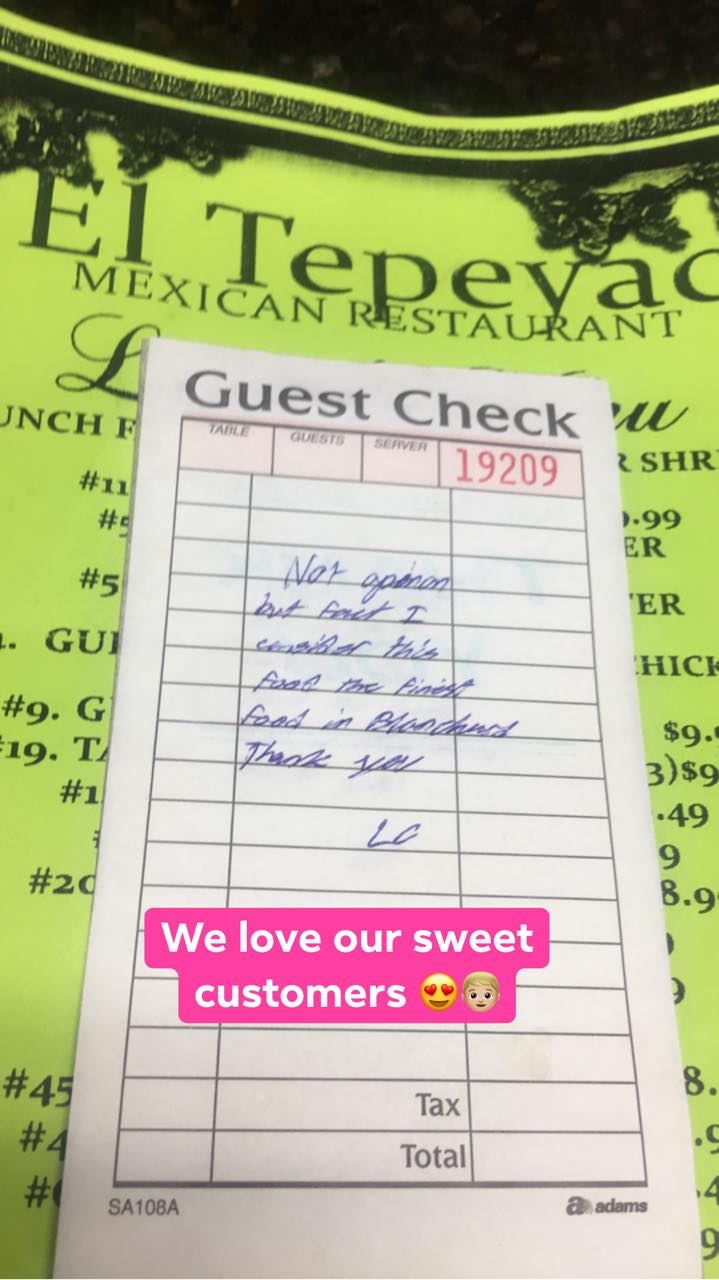 El Tepeyac
MEXICAN RESTAURANT
Guest Check
TABLE GUESTS SERVER 19209
UNCH F
R SHR
#11
.99
ER
#5
ER
. GUI
HICK
#9. G
$9.
19. TA
3)$9
#1
.49
9
#20
8.9
Not opinon
but fact I
consider this
food the finest
food in Blanchard
Thank you
LC
We love our sweet
customers 😍👦🏼
9
#45
8.
Tax
#4
Total
#6
SA108A
adams